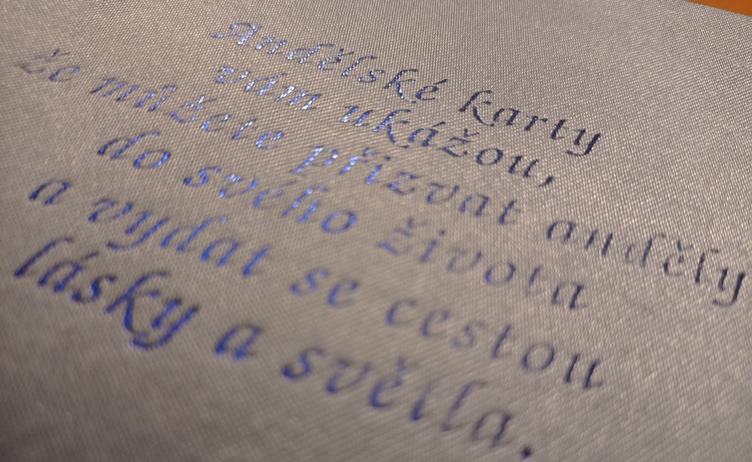 Andělské karty
vám ukážou,
že můžete přizvat anděly
do svého života
a vydat se cestou
lásky a světla.